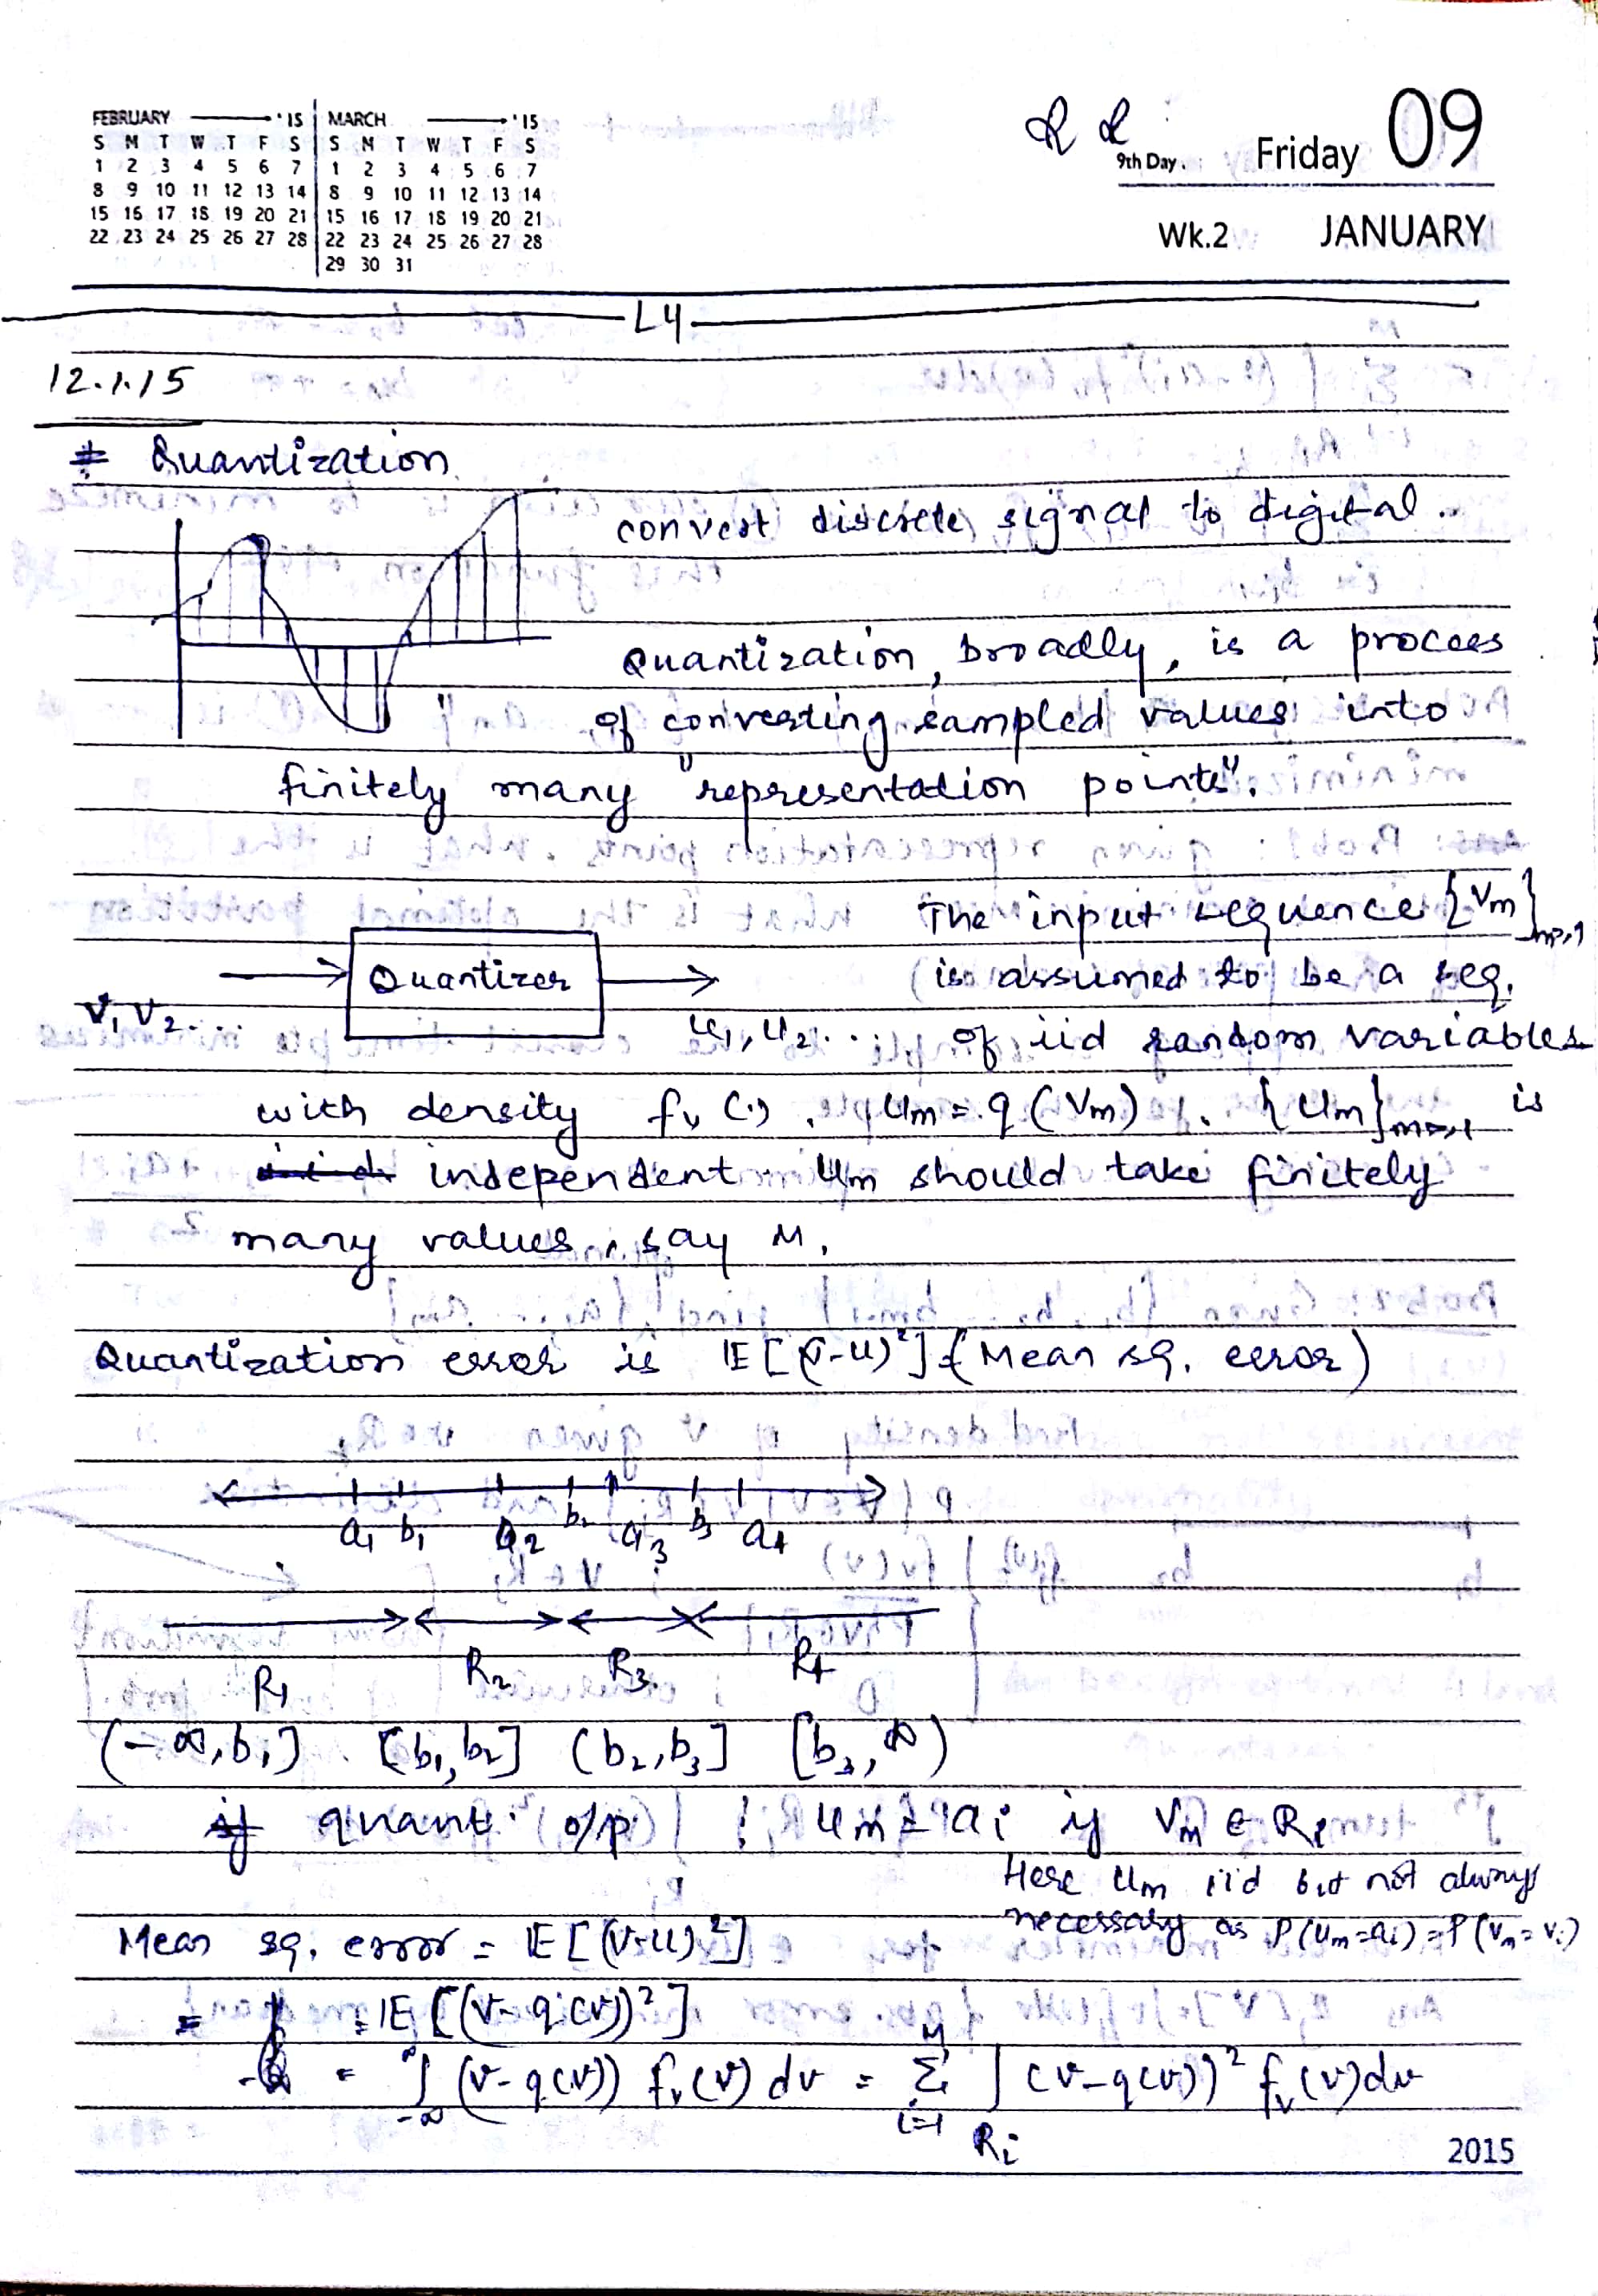 FEBRUARY '15 MARCH '15
S M T W T F S S M T W T F S
1 2 3 4 5 6 7 1 2 3 4 5 6 7
8 9 10 11 12 13 14 8 9 10 11 12 13 14
15 16 17 18 19 20 21 15 16 17 18 19 20 21
22 23 24 25 26 27 28 22 23 24 25 26 27 28
29 30 31
9th Day. Friday 09
Wk.2 JANUARY
L4
12.1.15
# Quantization
convert discrete signal to digital..
Quantization, broadly, is a process
of converting sampled values into
finitely many "representation points".
The input sequence {Vm}m≥1
Quantizer is assumed to be a seq.
V1 V2... U1, U2... of iid random variables
with density fv(.), Um = q(Vm). {Um}m≥1 is
independent. Um should take finitely
many values, say M.
Quantization error is E[(V-U)²] (Mean sq. error)
a1 b1 a2 b2 a3 b3 a4
R1 R2 R3 R4
(-∞, b1] [b1, b2] (b2, b3] [b3, ∞)
quant. o/p : Um = ai if Vm ∈ Ri
Here Um iid but not always
necessary as P(Um=ai) = P(Vm=Vi)
Mean sq. error = E[(V-U)²]
= = E[(V-q(V))²]
= ∫_{-∞}^{∞} (v-q(v)) fv(v) dv = Σ_{i=1}^{M} ∫_{Ri} (v-q(v))² fv(v)dv
2015